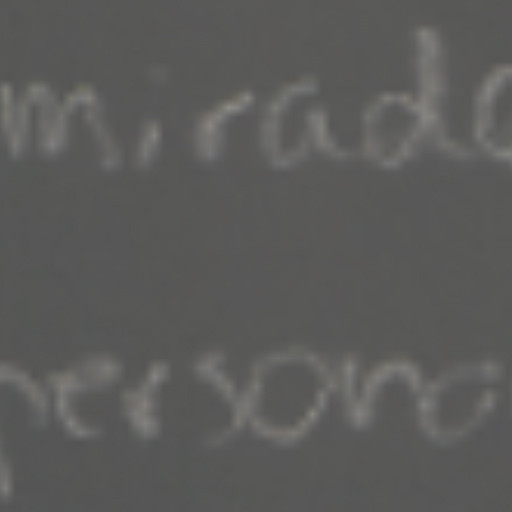 mirada
persona